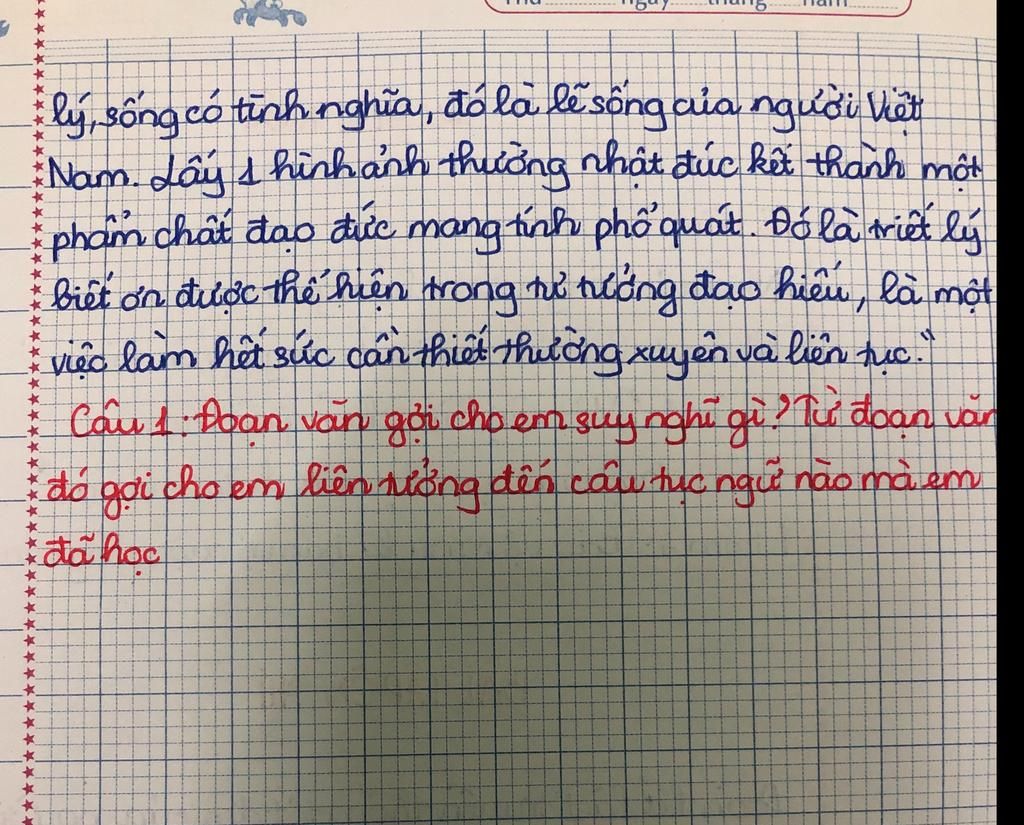 Thứ ngày tháng năm
lý, sống có tình nghĩa, đó là lẽ sống của người Việt
Nam. Lấy 1 hình ảnh thường nhật đúc kết thành một
phẩm chất đạo đức mang tính phổ quát. Đó là triết lý
biết ơn được thể hiện trong tư tưởng đạo hiếu, là một
việc làm hết sức cần thiết thường xuyên và liên tục."
Câu 1: Đoạn văn gợi cho em suy nghĩ gì? Từ đoạn văn
đó gợi cho em liên tưởng đến câu tục ngữ nào mà em
đã học